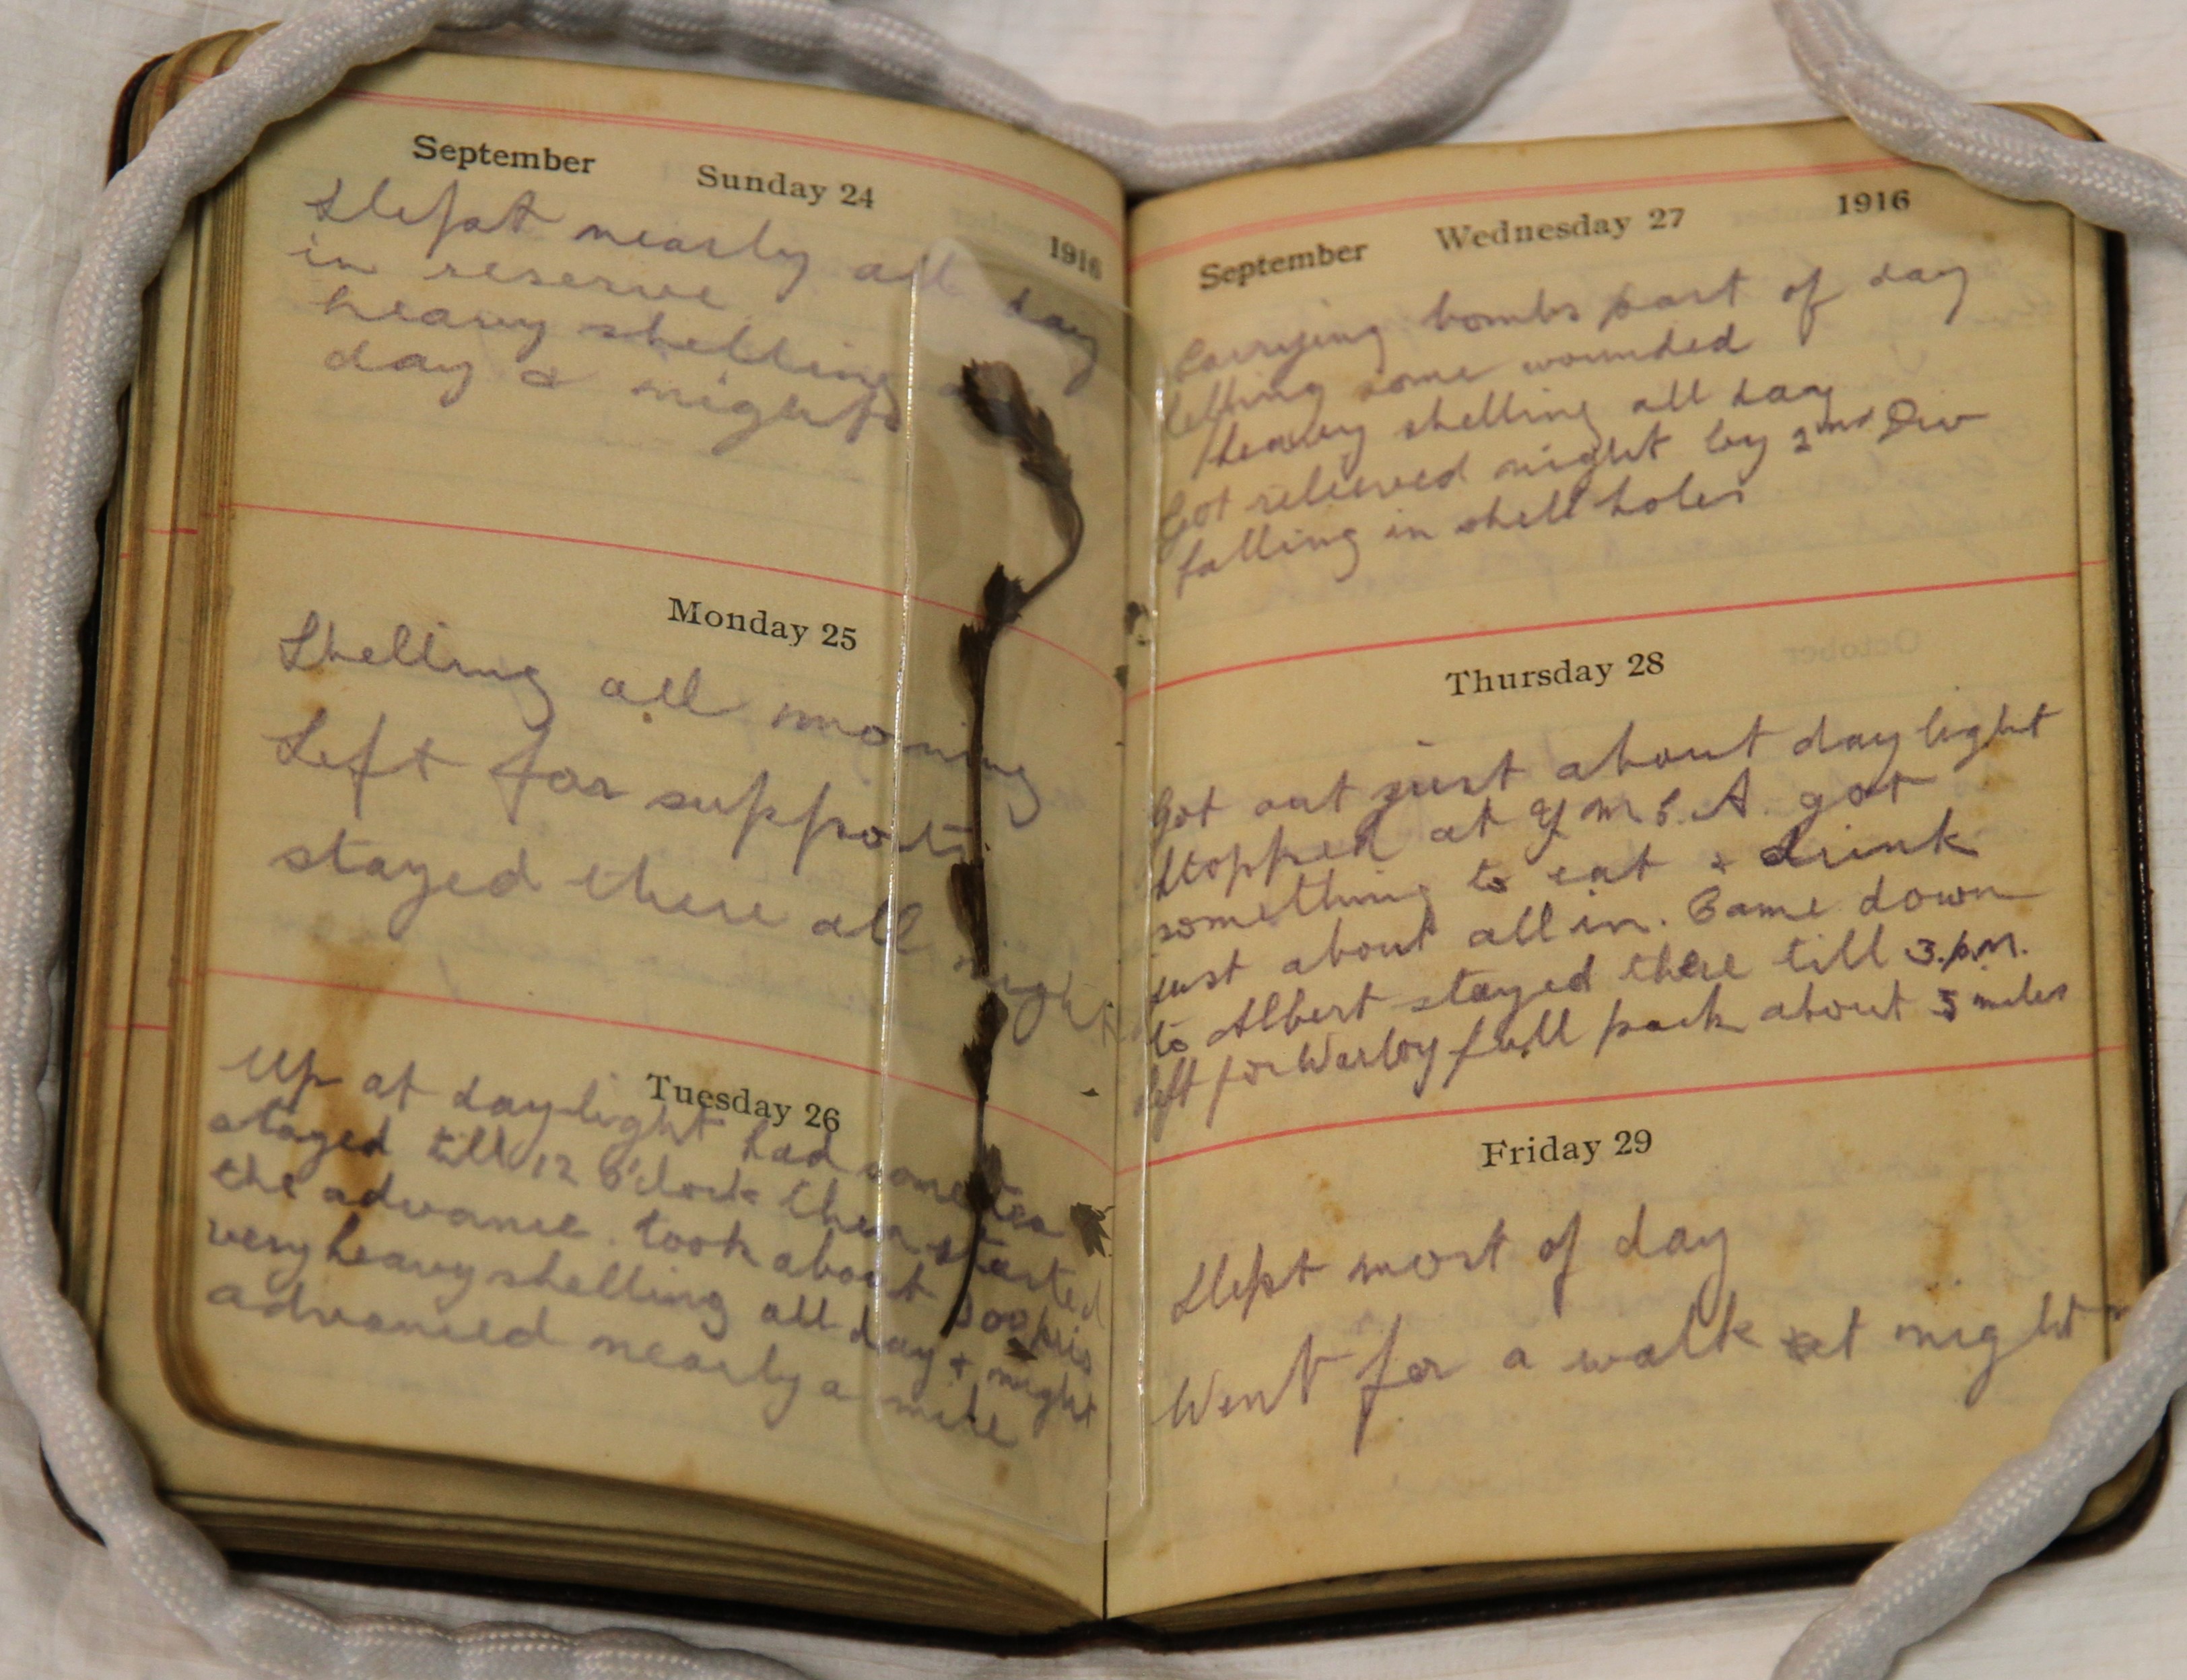 September Sunday 24 1916
Slept nearly all day
in reserve
heavy shelling
day & night
Monday 25
Shelling all morning
Left for supports
stayed there all night
Tuesday 26
Up at daylight had some tea
stayed till 12 o'clock then started
the advance. took about 300 pris
very heavy shelling all day + night
advanced nearly a mile
September Wednesday 27 1916
Carrying bombs part of day
some wounded
Heavy shelling all day
Got relieved night by 2nd Div
falling in shell holes
Thursday 28
Got out just about daylight
stopped at Y.M.C.A. got
something to eat & drink
just about all in. Came down
to Albert stayed there till 3.p.m.
left for Warloy full pack about 5 miles
Friday 29
Slept most of day
Went for a walk at night